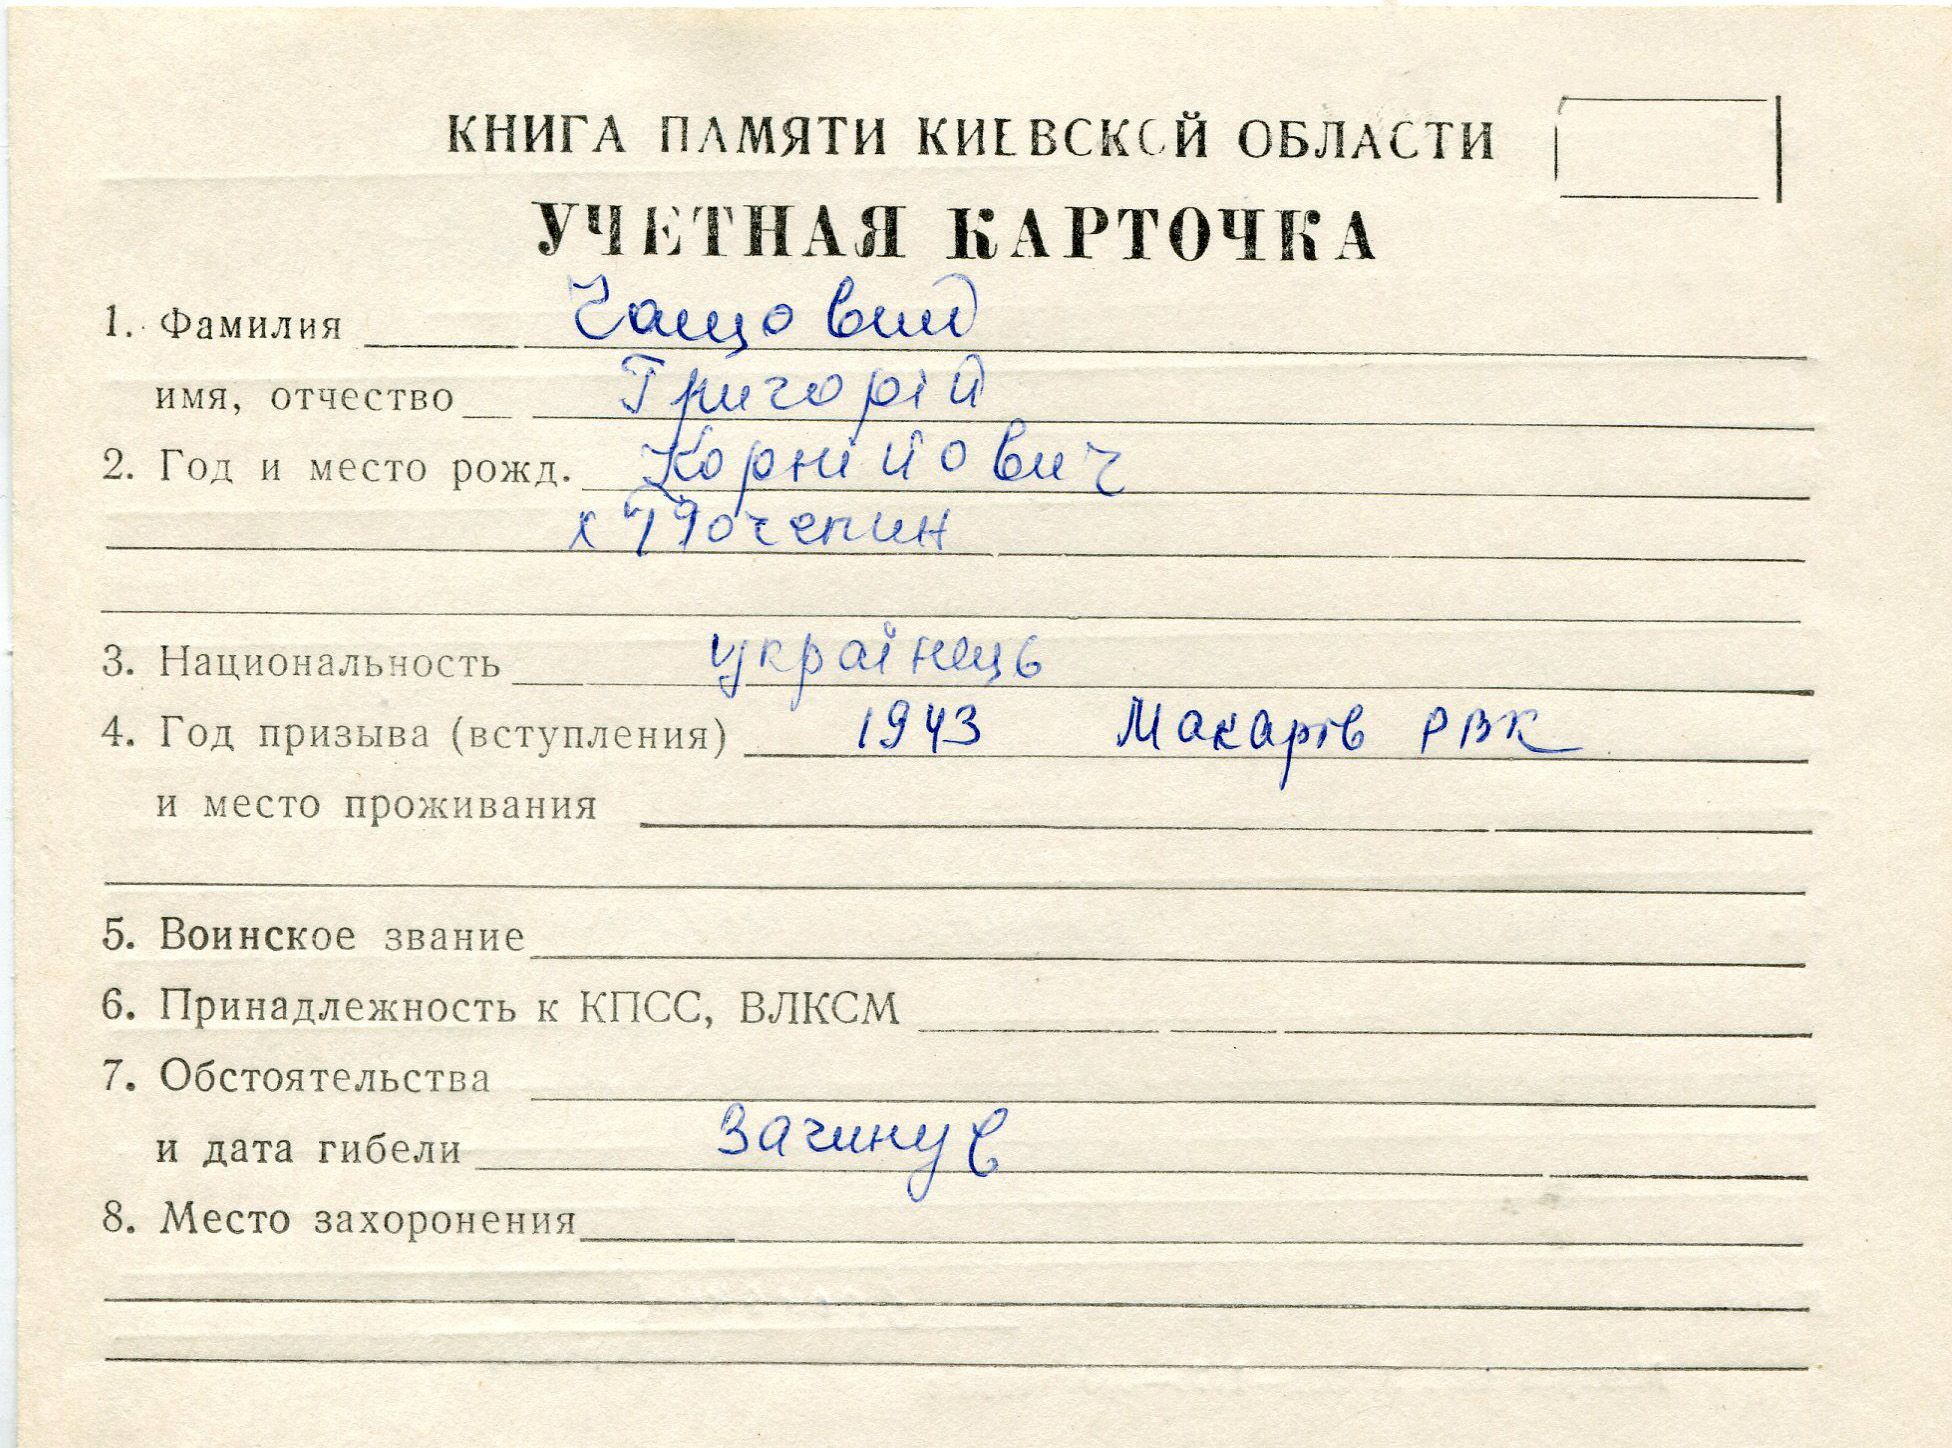 КНИГА ПАМЯТИ КИЕВСКОЙ ОБЛАСТИ
УЧЕТНАЯ КАРТОЧКА
1. Фамилия Чащовий
имя, отчество Григорій
2. Год и место рожд. Корнійович
х Почепин
3. Национальность українець
4. Год призыва (вступления) 1943 Макарів РВК
и место проживания
5. Воинское звание
6. Принадлежность к КПСС, ВЛКСМ
7. Обстоятельства
и дата гибели Загинув
8. Место захоронения